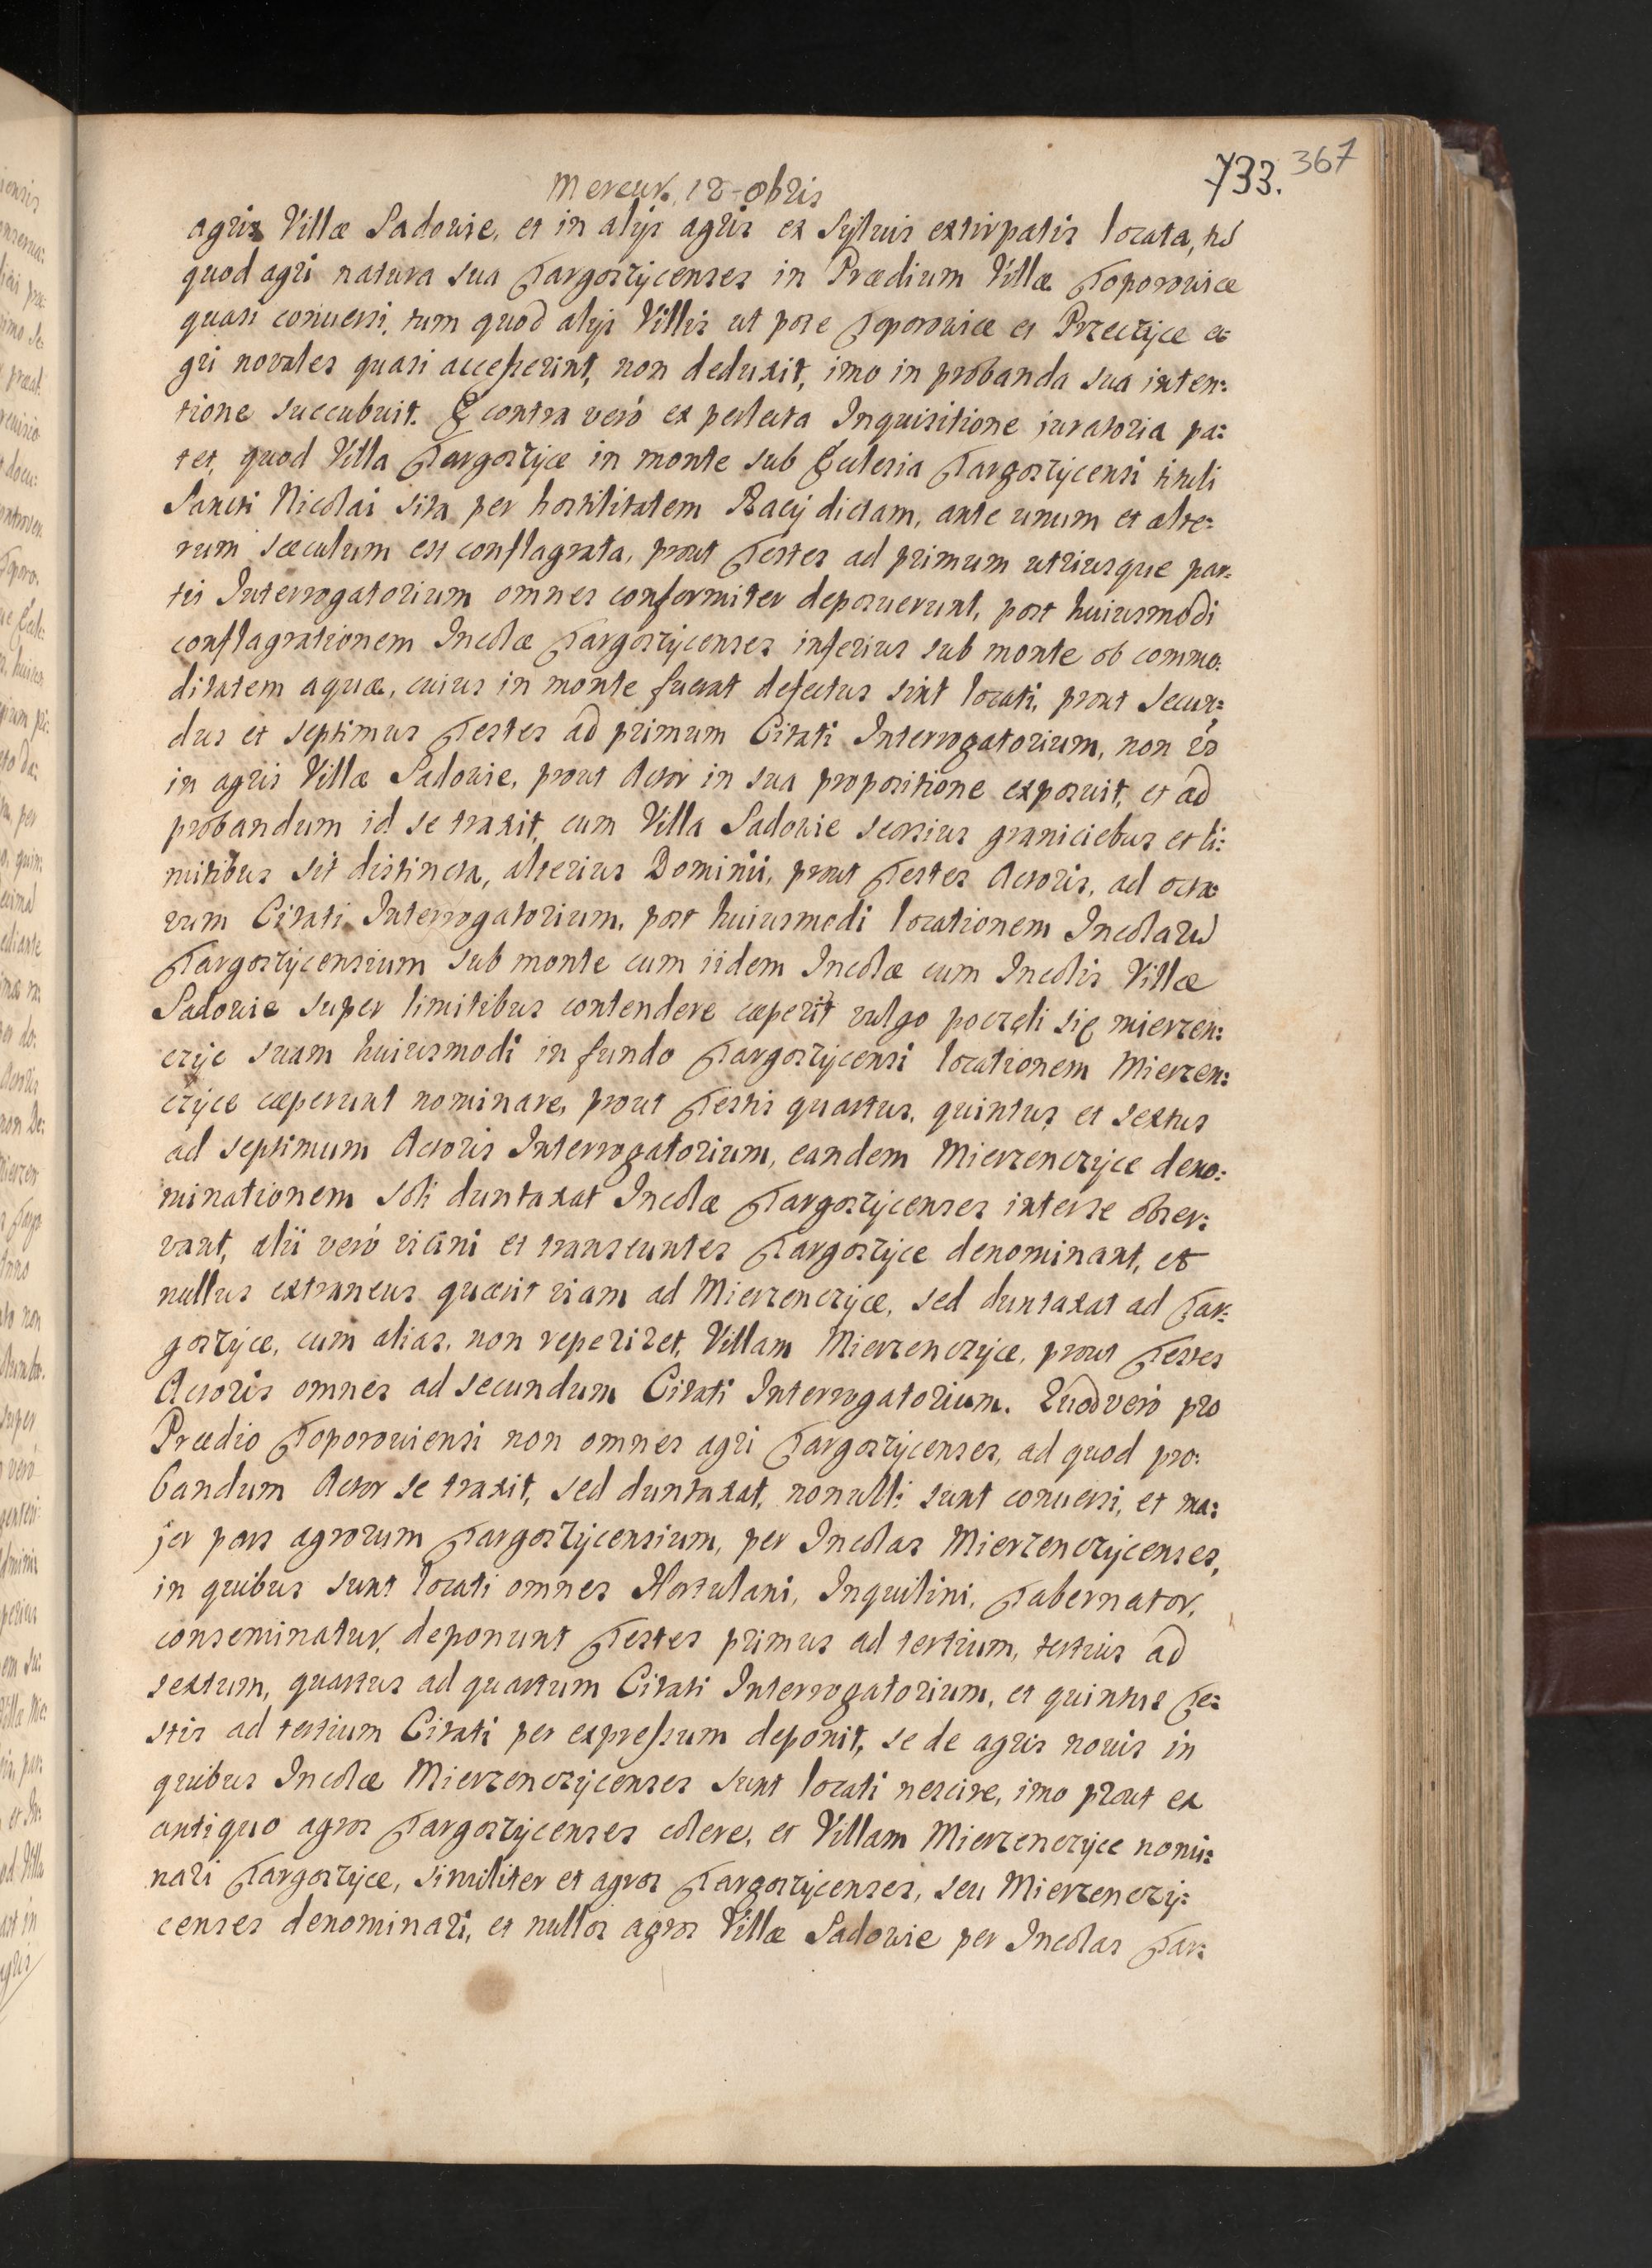 733. 367
Mercur. 18 8bris
agris Villæ Sadowie, et in alijs agris ex Sylvis extirpatis locata, tũ
quod agri natura sua Targoszycenses in Prædium Villæ Toporowice
quasi conversi, tum quod alijs Villis ut pote Toporowice et Przeczyce a=
gri novales quasi accesserint, non deduxit, imo in probanda sua inten:
tione succubuit. E contra verò ex perlecta Inquisitione juratoria pa:
tet, quod Villa Targoszyce in monte sub Ecclesia Targoszycensi tituli
Sancti Nicolai sita per hostilitatem Racij dictam, ante unum et alte:
rum sæculum est conflagrata, prout Testes ad primum utriusque par:
tis Interrogatorium omnes conformiter deposuerunt, post huiusmodi
conflagrationem Incolæ Targoszycenses inferius sub monte ob commo:
ditatem aquæ, cuius in monte fuerat defectus sint locati, prout Secun:
dus et septimus Testes ad primum Citati Interrogatorium, non vo
in agris Villæ Sadowie, prout Actor in sua propositione exposuit, et ad
probandum id se traxit, cum Villa Sadowie seorsius graniciebus et li:
mitibus sit distincta, alterius Dominii, prout Testes Actoris, ad octa:
vum Citati Interrogatorium, post huiusmodi locationem Incolarũ
Targoszycensium sub monte cum iidem Incolæ cum Incolis Villæ
Sadowie super limitibus contendere cæperit vulgo poczęli się mierzen:
czyc suam huiusmodi in fundo Targoszycensi locationem Mierzen:
czyce cæperunt nominare, prout Testis quartus, quintus et sextus
ad septimum Actoris Interrogatorium, eandem Mierzenczyce deno:
minationem soli duntaxat Incolæ Targoszycenses inter se obser:
vant, alii verò vicini et transeuntes Targoszyce denominant, et
nullus extraneus quærit viam ad Mierzenczyce, sed duntaxat ad Tar:
goszyce, cum alias, non reperiret, Villam Mierzenczyce, prout Testes
Actoris omnes ad secundum Citati Interrogatorium. Quod verò pro
Prædio Toporowiensi non omnes agri Targoszycenses, ad quod pro:
bandum Actor se traxit, sed duntaxat, nonulli sunt conversi, et ma:
jor pars agrorum Targoszycensium, per Incolas Mierzenczycenses,
in quibus sunt locati omnes Hortulani, Inquilini, Tabernator,
conseminatur, deponunt Testes primus ad tertium, tertius ad
sextum, quartus ad quartum Citati Interrogatorium, et quintus Te:
stis ad tertium Citati per expressum deponit, se de agris novis in
quibus Incolæ Mierzenczycenses sunt locati nescire, imo prout ex
antiquo agros Targoszycenses colere, et Villam Mierzenczyce nomi:
nari Targoszyce, similiter et agros Targoszycenses, seu Mierzenczy:
censes denominari, et nullos agros Villæ Sadowie per Incolas Tar: